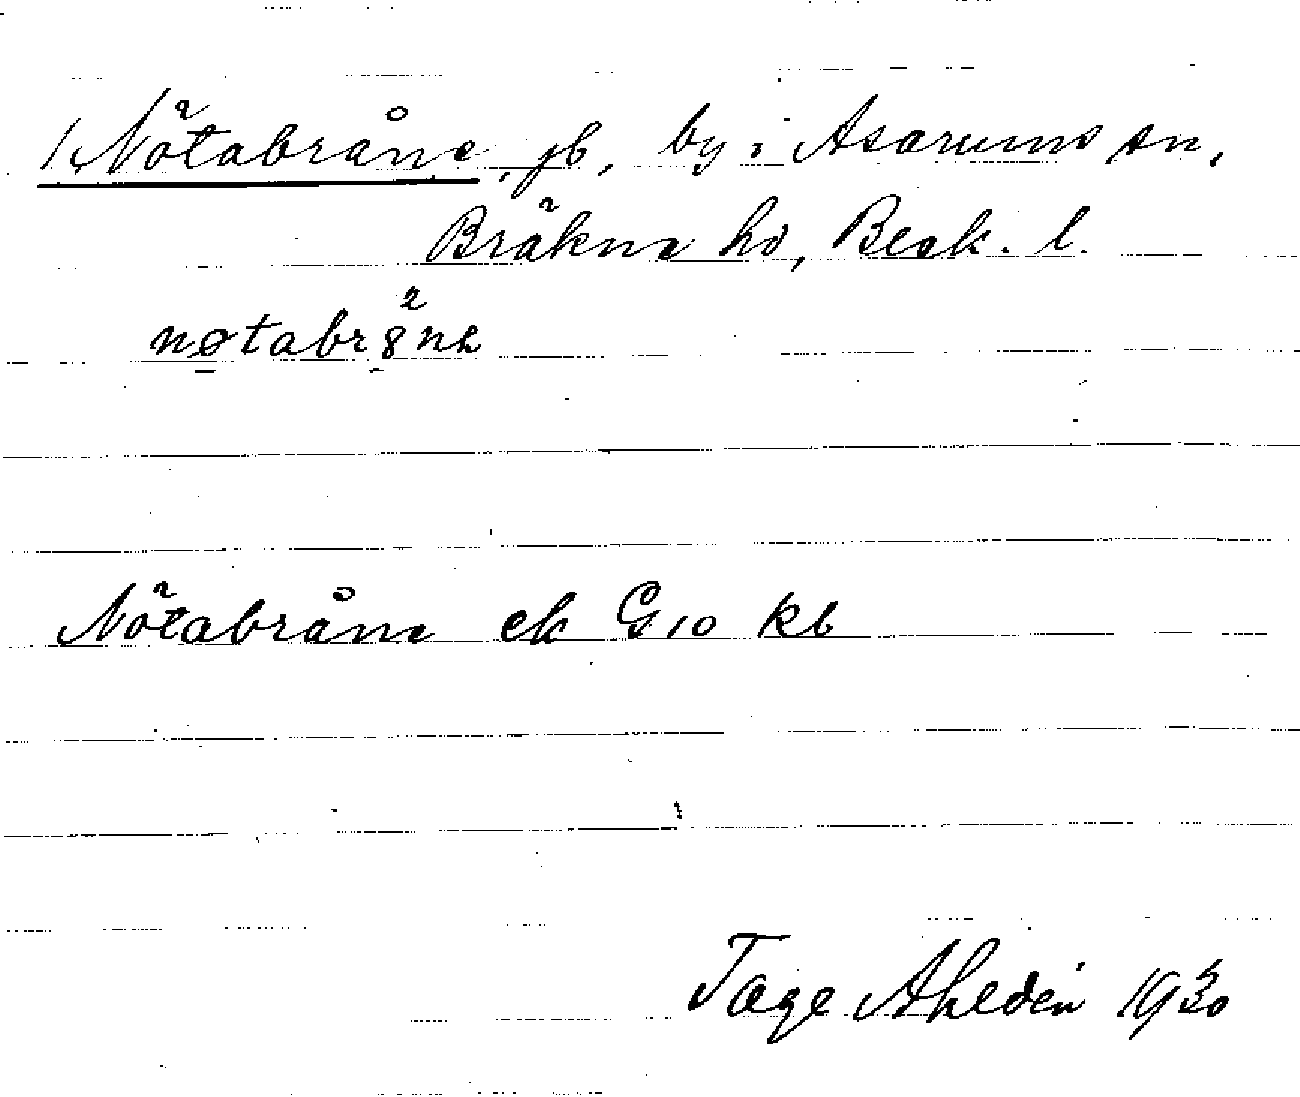 1, Nötabråne, jb, by i Asarums sn,
Bräkne hd, Blek. l.
Nötabråne ek G10 kb
Tage Ahldén 1930